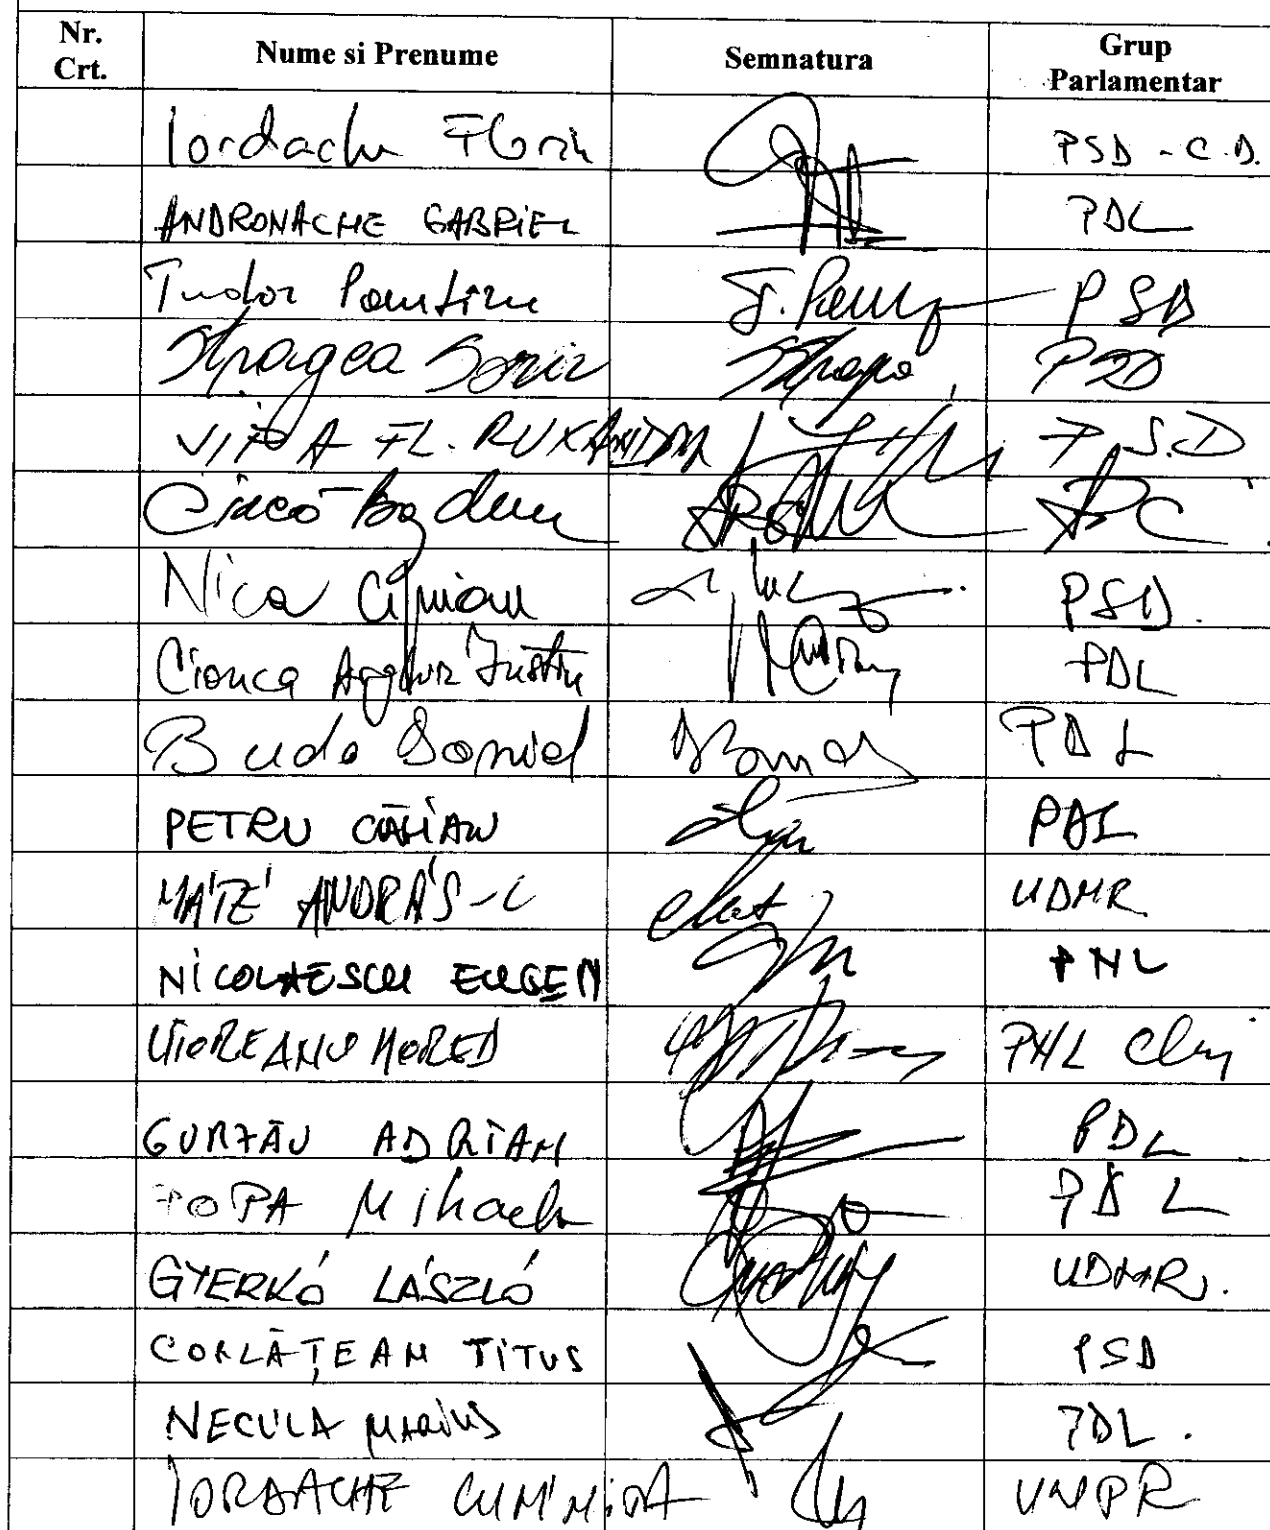 Nr. Crt. Nume si Prenume Semnatura Grup Parlamentar
Iordache Florin PSD - C.D.
ANDRONACHE GABRIEL PDL
Tudor Panţiru PSD
Stragea Sorin PSD
VIPA FL. RUXANDRA P.S.D
Ciucă Bogdan PC
Nica Ciprian PSD.
Cionca Arghir Iustin PDL
Buda Daniel PDL
PETRU CĂLIAN PDL
MÁTÉ ANDRÁS-L UDMR
NICOLAESCU EUGEN PNL
UIOREANU HOREA PNL Cluj
GURZĂU ADRIAN PDL
POPA Mihaela PDL
GYERKÓ LÁSZLÓ UDMR.
CORLĂŢEAN TITUS PSD
NECULA MARIUS PDL.
IORDACHE LUMINIŢA UNPR